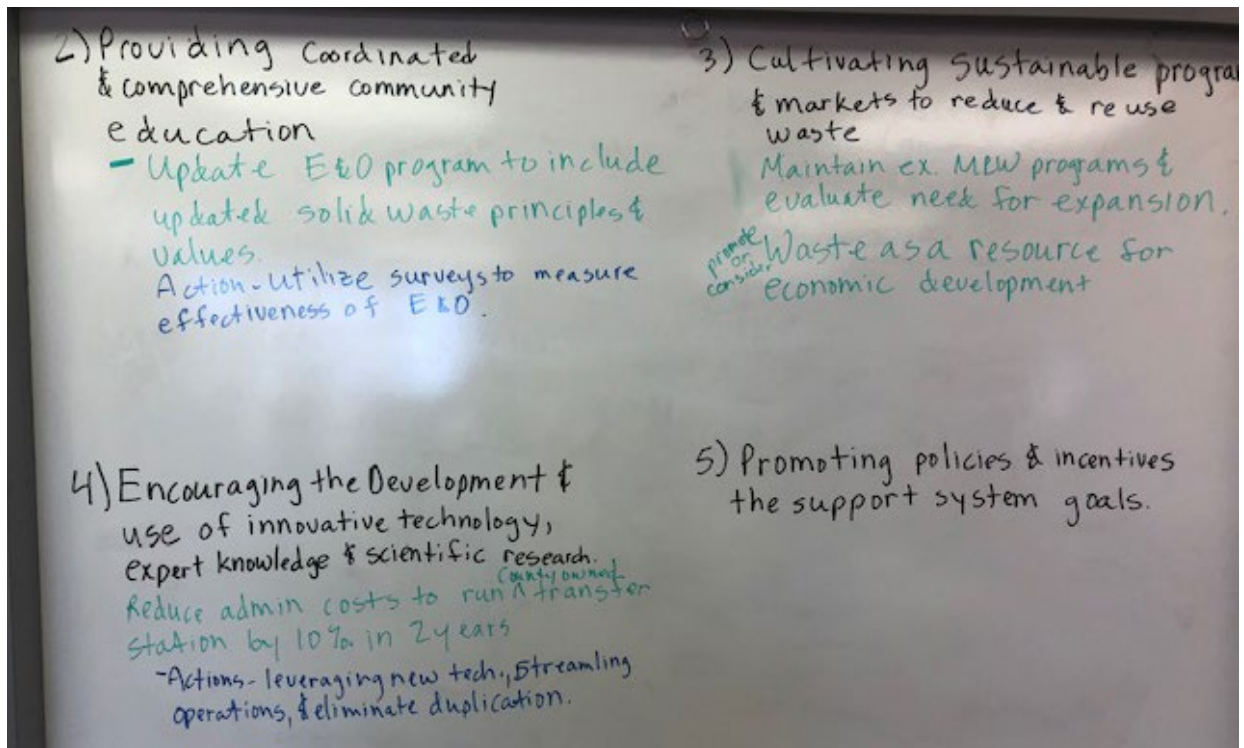 2) Providing Coordinated
& comprehensive community
education
- Update E&O program to include
updated solid waste principles &
values.
Action - Utilize surveys to measure
effectiveness of E&O.
3) Cultivating sustainable progra
& markets to reduce & reuse
waste
Maintain ex. MRW programs &
evaluate need for expansion.
promote
or
consider
Waste as a resource for
economic development
4) Encouraging the Development &
use of innovative technology,
expert knowledge & scientific research.
County owned
Reduce admin costs to run ^ transfer
station by 10% in 2 years
- Actions - leveraging new tech., Streamling
operations, & eliminate duplication.
5) Promoting policies & incentives
the support system goals.